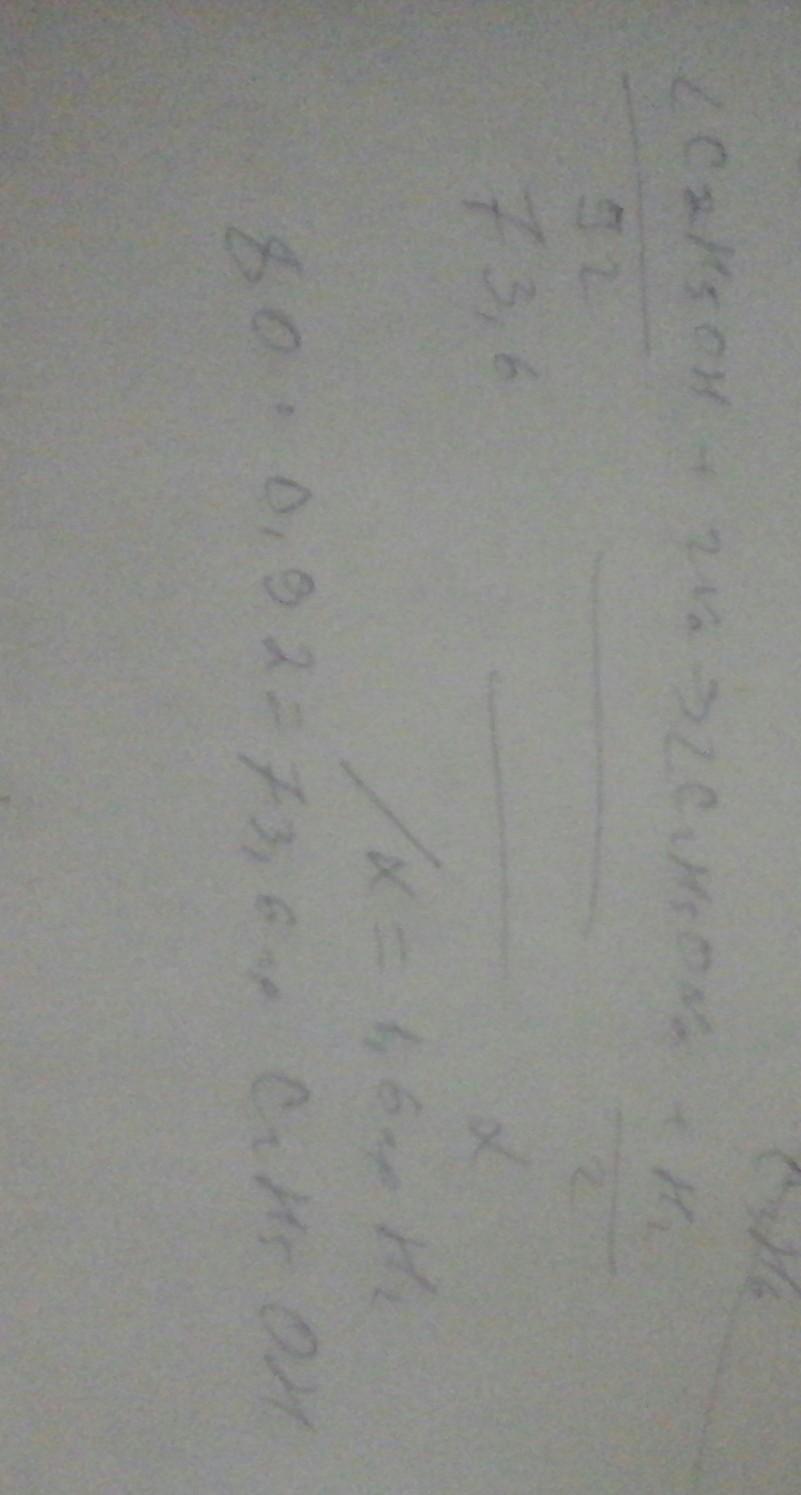 C₂H₆
2C₂H₅OH + 2Na → 2C₂H₅ONa + H₂
92 2
73,6 x
x = 1,6 гр H₂
80 · 0,92 = 73,6 гр C₂H₅OH